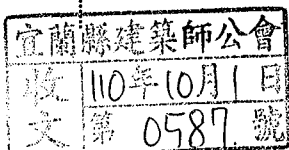 宜蘭縣建築師公會
收文
110年10月1日
第0587號